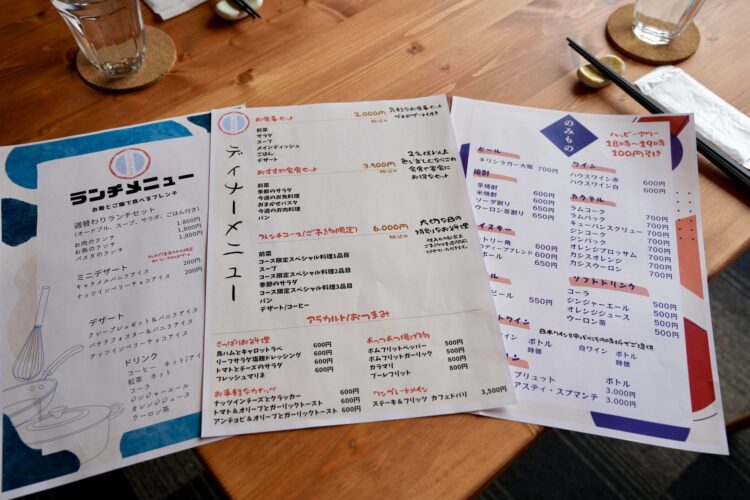 ランチメニュー
お箸とご飯で食べるフレンチ
週替わりランチセット
(オードブル、スープ、サラダ、ごはん付き)
お肉のランチ 1,800円
お魚のランチ 1,800円
パスタのランチ 1,800円
ミニデザート 200円
キャラメルバニラアイス
ナッツインベリーチョコアイス 200円
デザート
クレープシュゼット&バニラアイス
バナナフォスター&バニラアイス
ナッツインベリーチョコアイス
ドリンク
コーヒー ホット/アイ
紅茶 ホット
コーラ
ジンジャーエール
オレンジジュース
ウーロン茶
ディナーメニュー
お食事セット 2,000円
税込み
前菜
サラダ
スープ
メインディッシュ
ごはん
デザート
おすすめ食事セット 3,500円
税込み
2名様以上
前菜
季節のサラダ
今週のお魚料理
おまかせパスタ
今週のお肉料理
パン
フレンチコース(ご予約限定) 6,000円
税込み
大切な日の
特別なお料理
前菜
コース限定スペシャル料理1品目
スープ
コース限定スペシャル料理2品目
季節のサラダ
コース限定スペシャル料理3品目
パン
デザート/コーヒー
アラカルト/おつまみ
さっぱりお料理
鳥ハムとキャロットラペ 600円
リーフサラダ塩麹ドレッシング 600円
トマトとチーズのサラダ 600円
フレッシュマリネ 600円
お手軽なカナッペ
ナッツインチーズとクラッカー 600円
トマト&オリーブとガーリックトースト 600円
アンチョビ&オリーブとガーリックトースト 600円
あっつあつ揚げ物
ポムフリットペッパー 500円
ポムフリットガーリック 500円
カラマリ 800円
プーレフリット 800円
ワンプレートメイン
ステーキ&フリッツ カフェドパリ 3,500円
のみもの
ハッピーアワー
18時〜19時
100円引き
ビール
キリンラガー大瓶 700円
焼酎
芋焼酎 600円
米焼酎 600円
ソーダ割り
ウーロン茶割り 650円
ワイン
ハウスワイン赤 600円
ハウスワイン白 600円
カクテル
ラムコーク 700円
ラムバック 700円
キューバンスクリュー 700円
ジンコーク 700円
ジンバック 700円
オレンジブロッサム 700円
カシスオレンジ 700円
カシスウーロン 700円
ソフトドリンク
コーラ 500円
ジンジャーエール 500円
オレンジジュース 500円
ウーロン茶 500円
白ワイン ボトル
時価
ボトル
3,000円
アスティ・スプマンテ 3,000円